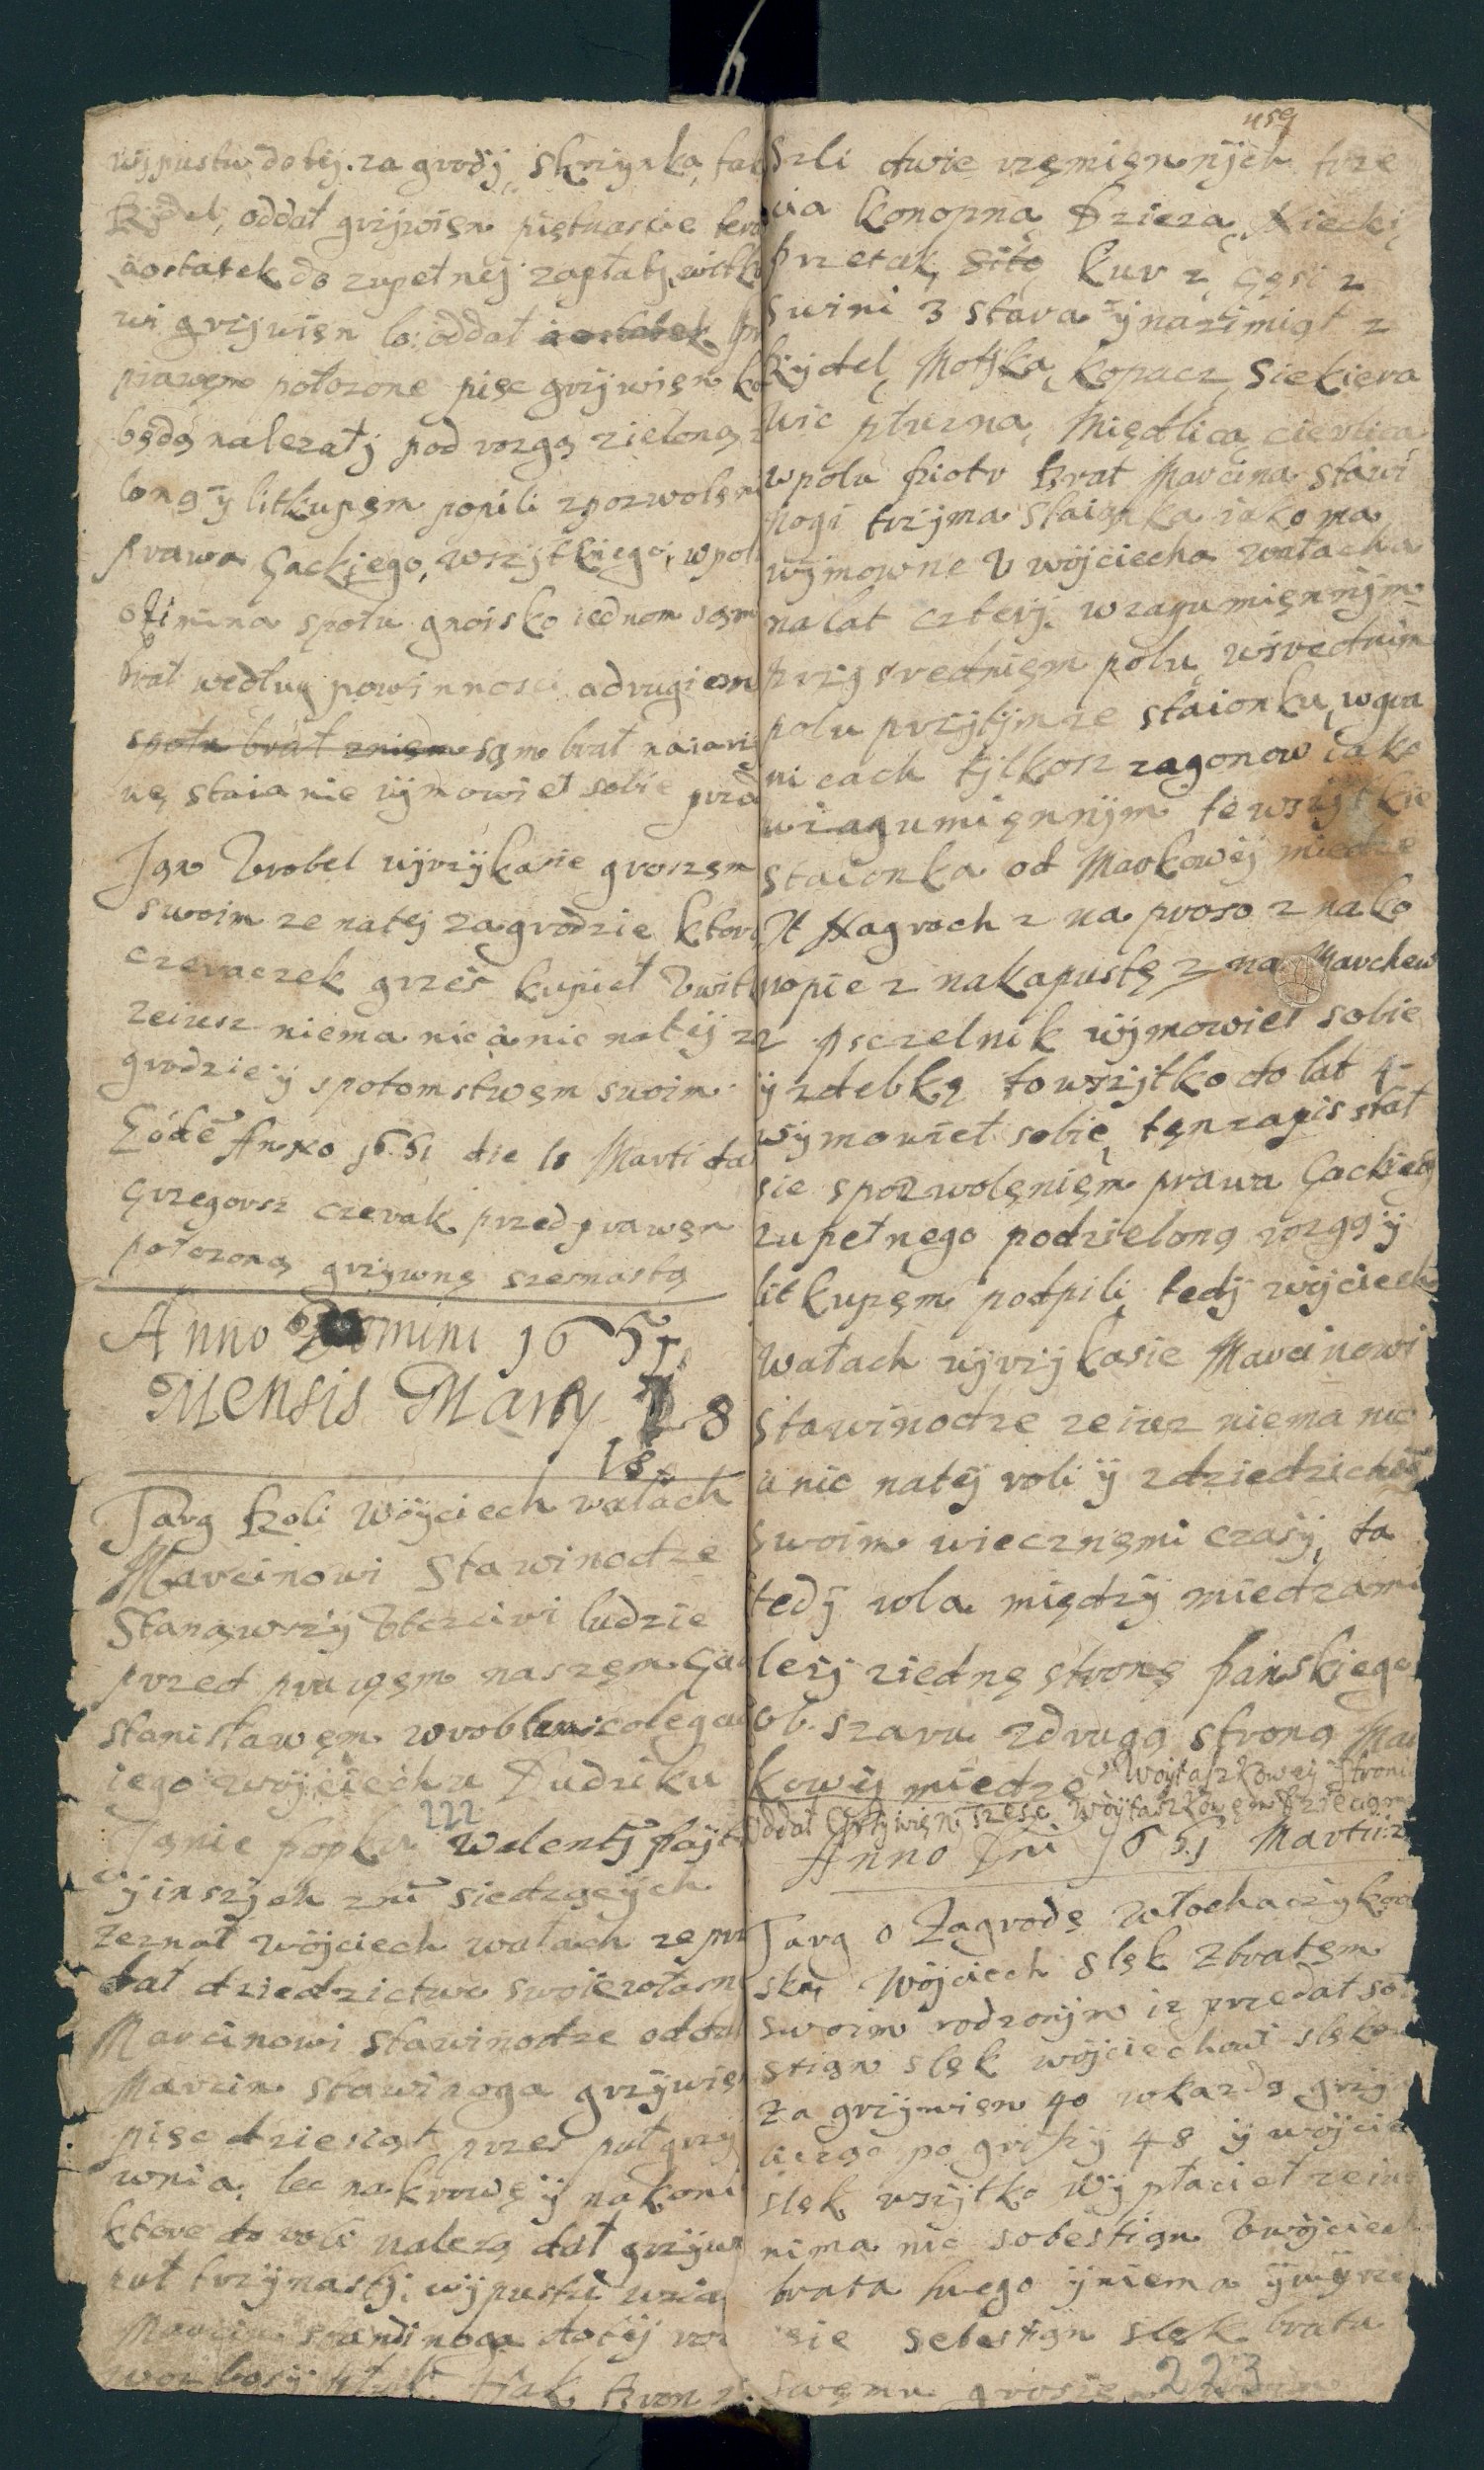 wypustu do tej zagrody, skrzynka,
Rydel, oddał grzywien piętnascie
a ostatek do zupełnej zapłaty,
wi grzywien 10 oddał a ostatek
prawem położone pięc grzywien
będą należały pod rozgą zieloną
loną y litkupem popili z pozwoleni
prawa Gackiego, wszytkiego, w polu
ozimina społu gnoisko iednom
brat wedlug powinnosci a drugiem
społu brat zniem sąm brat na iarzi
nę staianie wymowieł sobie
Jan Wrobel wyrzyka sie groszem
swoim ze na tej zagrodzie ktorą
czeraczek grześ kupieł
ze iusz niema nic a nic na tej za
grodzie y s potomstwem swoim
Eodē Anno 1651 die 18 Marti
Grzegorsz czerak przed prawem
położoną grzywnę szesnastą
Anno Domini 1651
Mensis Marty 18
18
Targ Roli Woyciech wałach
Marcinowi Stawinodze
Stanąwszy Utczciwi ludzie
przed prawem naszem
stanisławem wroblem colega
iego woyciecha Dudziku
Janie popku Walenty
222
y inszych z nie siedzęcych
zeznał wojciech wałach ze prze
dał dziedzictwo swoie własne
Marcinowi stawinodze oddał
Marcin stawinoga grzywien
pięc dziesiąt przes puł grzy
wnia, lec na krowę y na koni
ktore do roli należą dał grzywn
puł trzynasty, wypustu wziął
Marcin stawinoga do tej roli
459
szli dwie rzemiennych trze
cia konopna, Dzieza, Niecki,
przetak, sito, kur 2, gęsi 2
swini 3 stara y nazimiąt 2
Rydel, Motyka, kopacz, siekiera
płuzna, Międlica, cierlica
w polu Piotr brat Marcina stawi
nogi trzyma staionka iako ma
wymowne U woyciecha wałacha
na lat cztery, w zagumiennym
przy srednięm polu, w srednim
polu przy tymze staionku, w gra
nicach tylkosz zagonow iako
w zagumiennym te wszytkie
staionka od Markowy miedze
It Na groch 2 na proso 2 na ko
nopie 2 na kapustę 2 na Marchew
2 psczelnik wymowieł sobie
y zdebkę to wszytko do lat 4
wymowieł sobie, ten zapis stał
sie s pozwoleniem prawa Gackiego
zupełnego podzieloną rozgą y
litkupem podpili, tedy woyciech
wałach wyrzyka sie Marcinowi
stawinodze ze iuz niema nic
a nic na tej roli y z dziedzicho
swoim wiecznęmi czasy, ta
tedy rola między miedzami
leży z iednę stronę Pańskiego
ob szaru z drugą stroną Mar
kowy miedze Woytaszkowey stroni
Oddał Grzywien szesc Woytaszkowem Dzieciąm
Anno Dni 1651 Martii 2
Targ o Zagrodę Wałochaczykow
ską Wojciech slęk z bratem
swoim rodzonym iz przedał se
stian slęk wojciechowi slękowi
za grzywien 40 w kazdą grzy
po groszy 48 y wojciech
slęk wszytko wypłacieł ze iusz
nima nic sobestian U wojciecha
brata swego y niema y wyrze
sie Sebestian slęk bratu
swemu
223